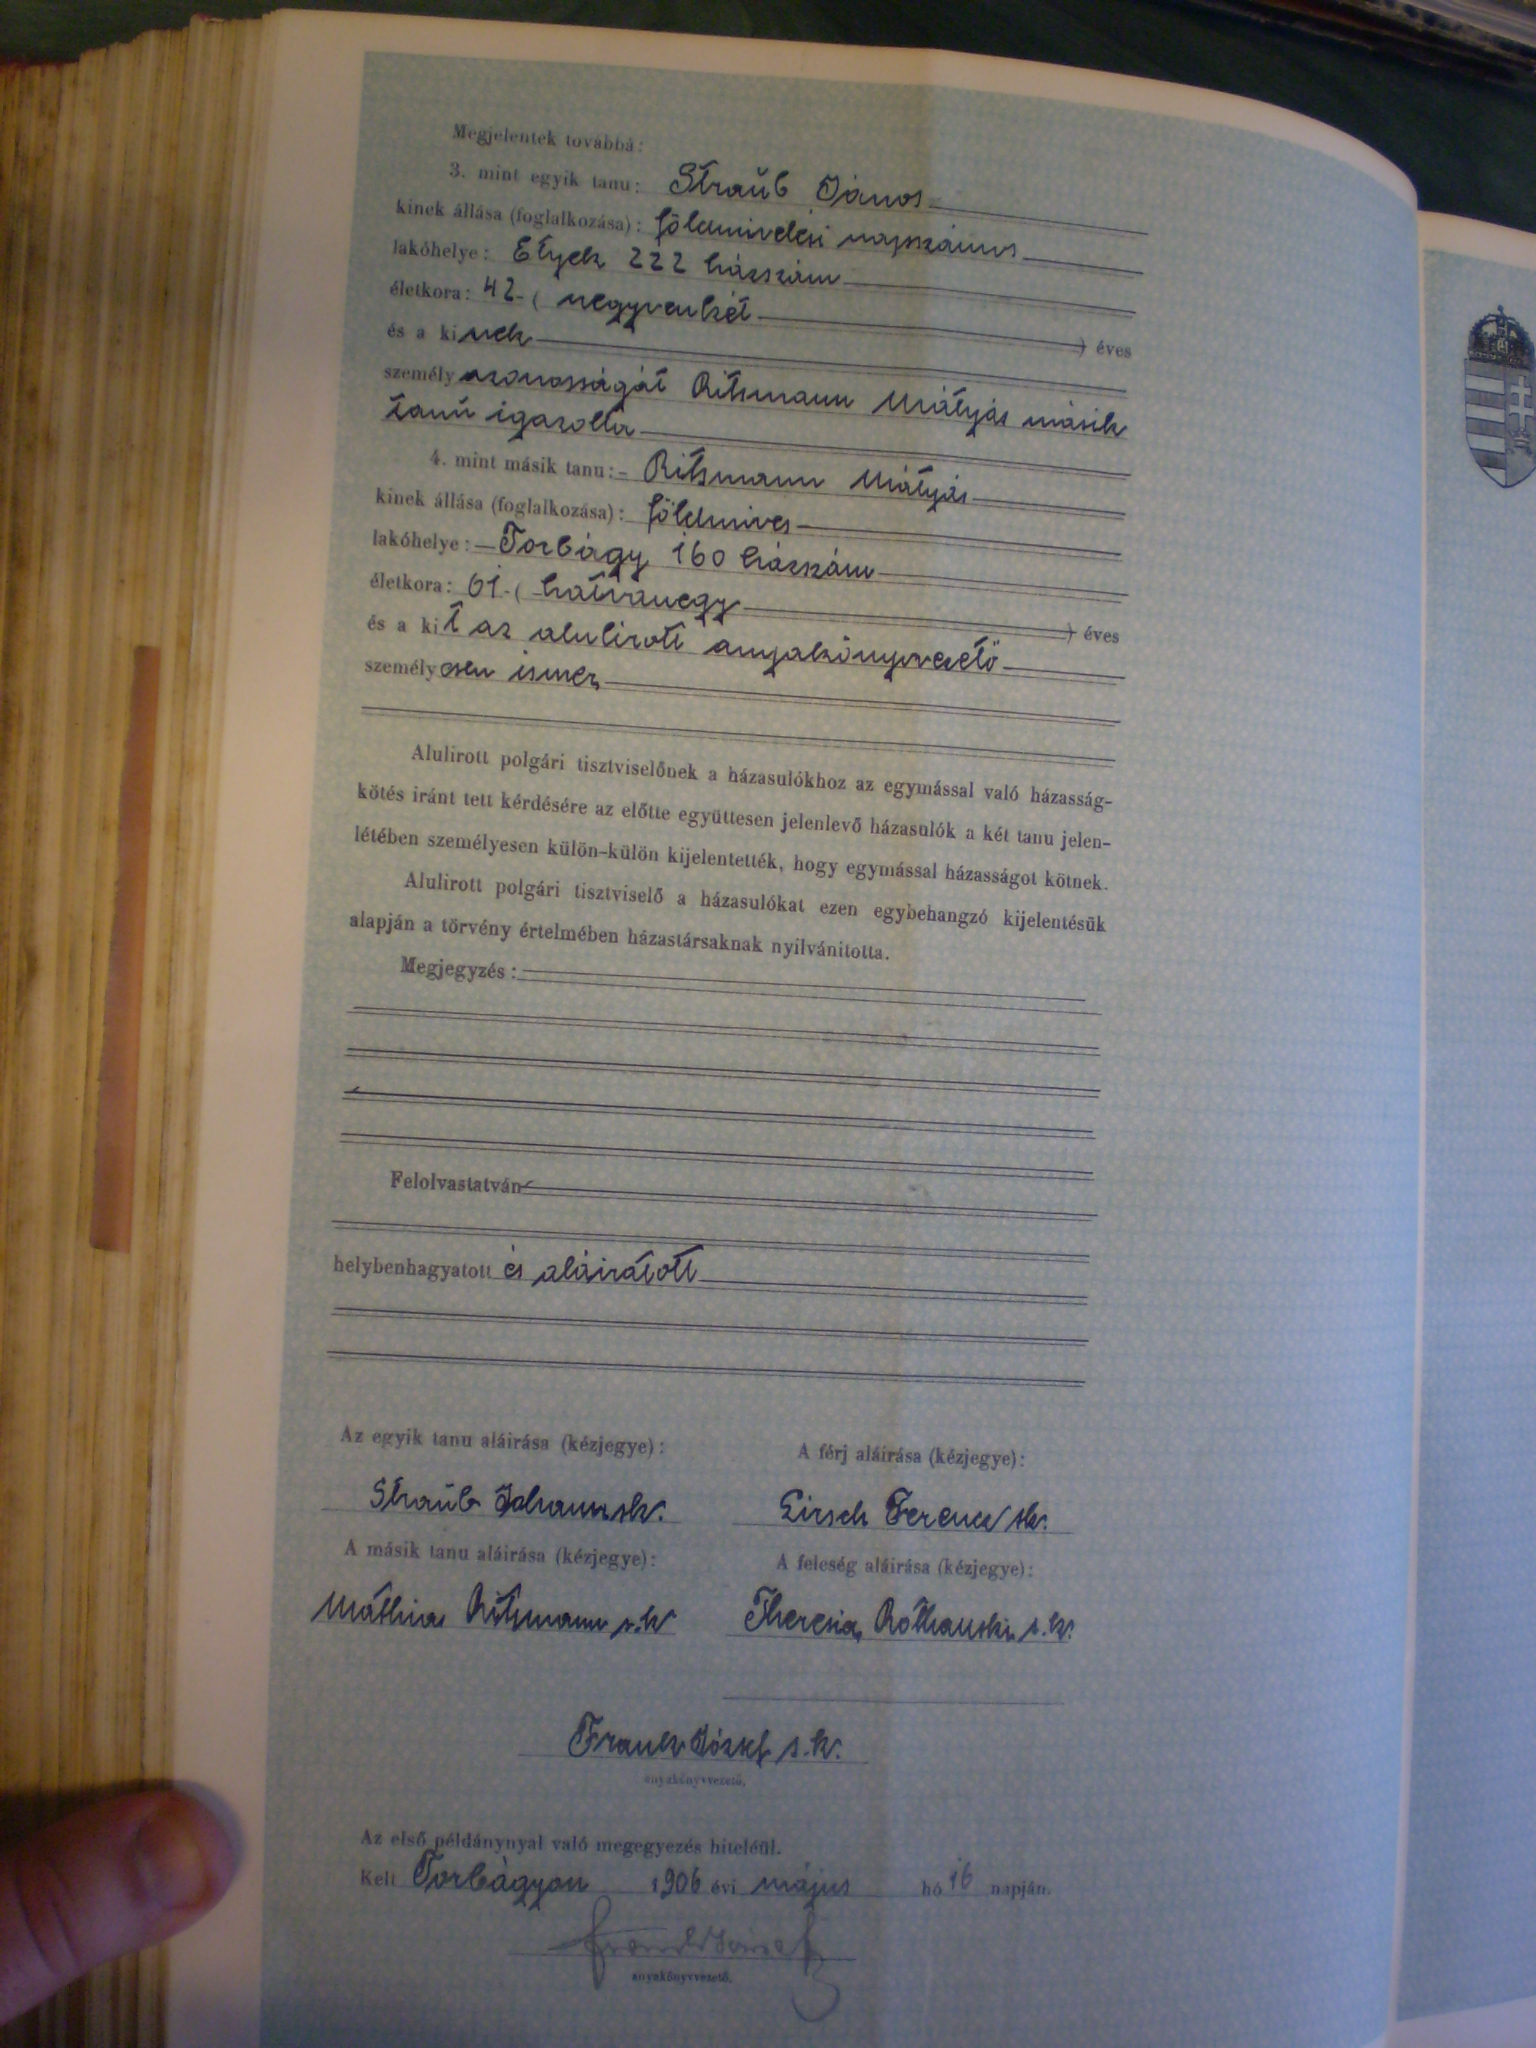 Megjelentek továbbá:
3. mint egyik tanu: Straub János
kinek állása (foglalkozása): földmivelési napszámos
lakóhelye: Etyek 222 házszám
életkora: 42 ( negyvenkét ) éves
és a kinek
személyazonosságát Ritsmann Mátyás másik
tanu igazolta
4. mint másik tanu: Ritsmann Mátyás
kinek állása (foglalkozása): földmives
lakóhelye: Torbágy 160 házszám
életkora: 61 ( hatvanegy ) éves
és a kit az alulirott anyakönyvvezető
személyesen ismer
Alulirott polgári tisztviselőnek a házasulókhoz az egymással való házasság-
kötés iránt tett kérdésére az előtte együttesen jelenlevő házasulók a két tanu jelen-
létében személyesen külön-külön kijelentették, hogy egymással házasságot kötnek.
Alulirott polgári tisztviselő a házasulókat ezen egybehangzó kijelentésük
alapján a törvény értelmében házastársaknak nyilvánitotta.
Megjegyzés:
Felolvastatván
helybenhagyatott és aláiratott
Az egyik tanu aláirása (kézjegye): A férj aláirása (kézjegye):
Straub Johann sk. Lirsch Ferencz sk.
A másik tanu aláirása (kézjegye): A feleség aláirása (kézjegye):
Mathias Ritsmann s.k. Theresia s.k.
Franck József s.k.
anyakönyvvezető.
Az első példánynyal való megegyezés hiteléül.
Kelt Torbágyon 1906 évi május hó 16 napján.
anyakönyvvezető.